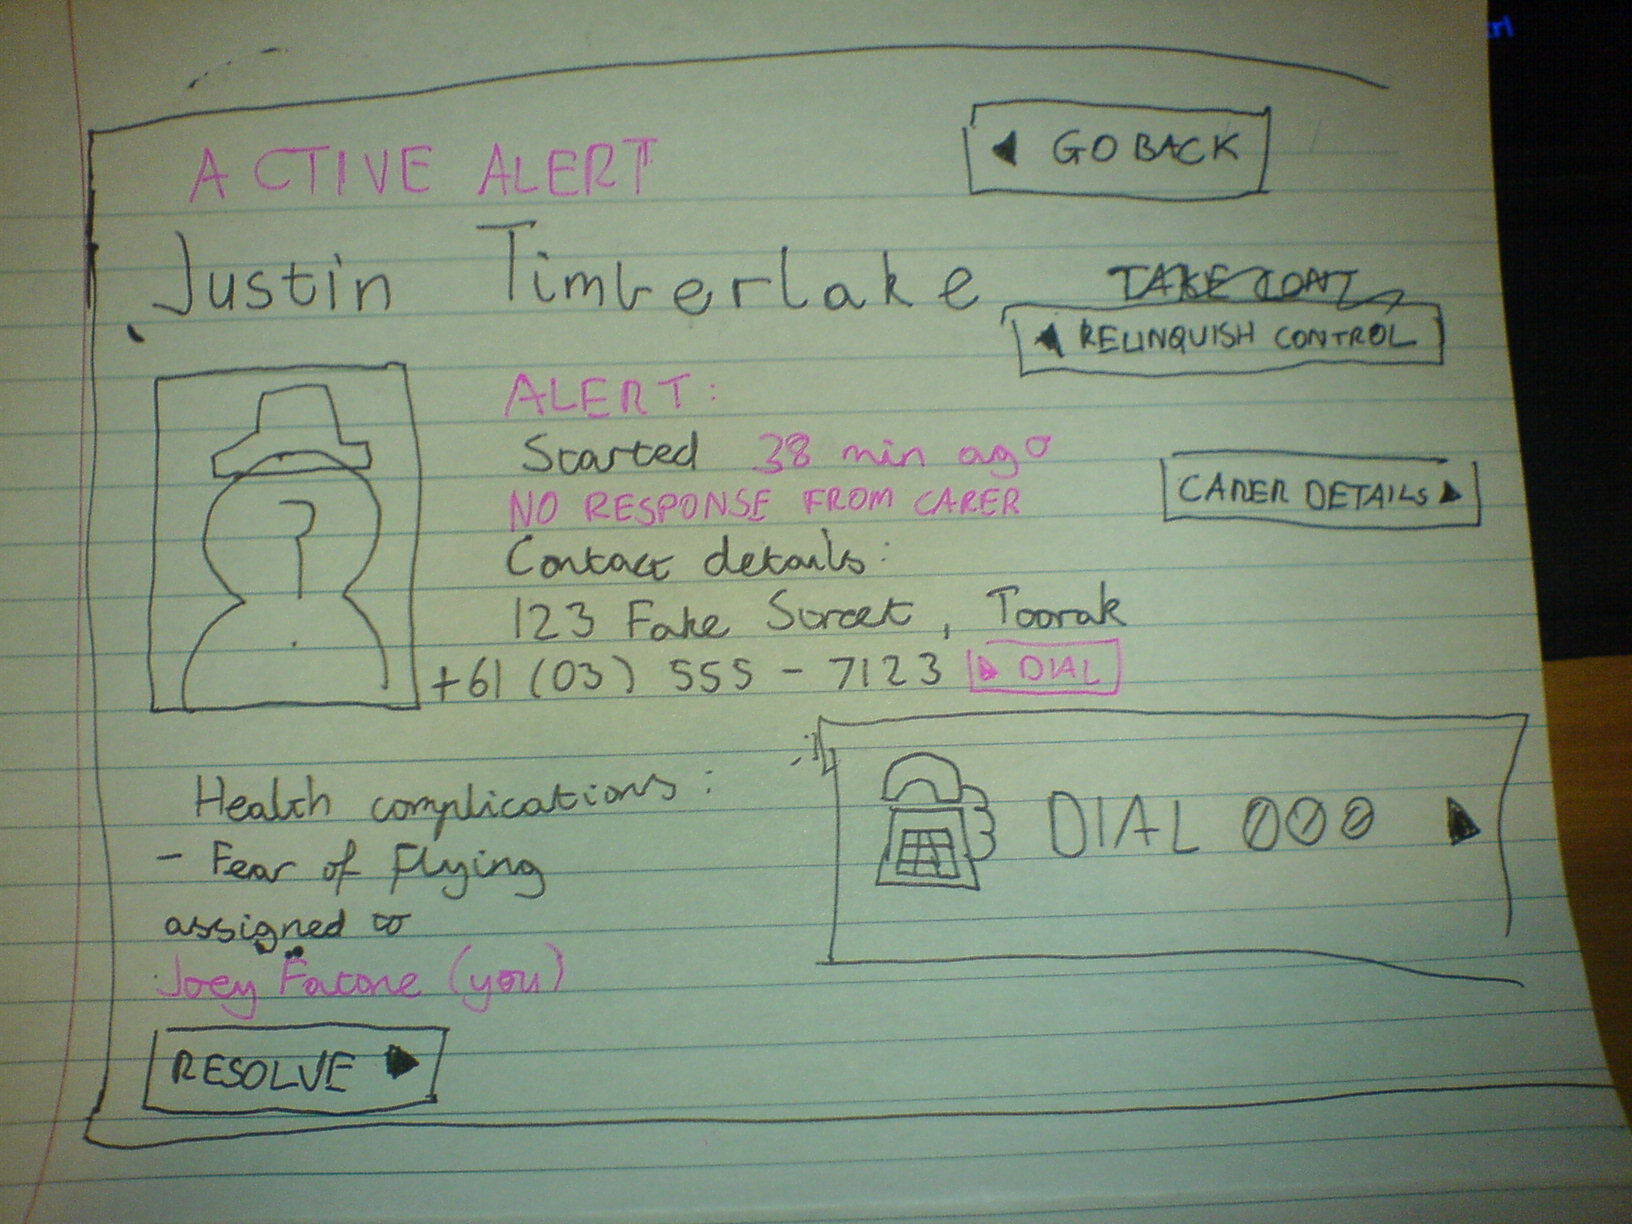 ACTIVE ALERT
◀ GO BACK
Justin Timberlake
◀ RELINQUISH CONTROL
ALERT:
Started 38 min ago
NO RESPONSE FROM CARER
CARER DETAILS ▶
Contact details:
123 Fake Street, Toorak
+61 (03) 555 - 7123 ▶ DIAL
?
Health complications:
- Fear of flying
DIAL 000 ▶
assigned to
Joey Fatone (you)
RESOLVE ▶